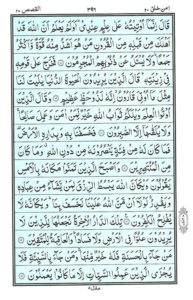 امن خلق ٢٠ ٣٩٦ القصص ٢٨
قَالَ اِنَّمَاۤ اُوْتِيْتُهٗ عَلٰى عِلْمٍ عِنْدِيْ اَوَلَمْ يَعْلَمْ اَنَّ اللّٰهَ قَدْ
اَهْلَكَ مِنْ قَبْلِهٖ مِنَ الْقُرُوْنِ مَنْ هُوَ اَشَدُّ مِنْهُ قُوَّةً وَّاَكْثَرُ
جَمْعًا وَلَا يُسْـَٔلُ عَنْ ذُنُوْبِهِمُ الْمُجْرِمُوْنَ فَخَرَجَ عَلٰى قَوْمِهٖ
فِيْ زِيْنَتِهٖ قَالَ الَّذِيْنَ يُرِيْدُوْنَ الْحَيٰوةَ الدُّنْيَا يٰلَيْتَ لَنَا
مِثْلَ مَاۤ اُوْتِيَ قَارُوْنُ اِنَّهٗ لَذُوْ حَظٍّ عَظِيْمٍ وَقَالَ الَّذِيْنَ
اُوْتُوا الْعِلْمَ وَيْلَكُمْ ثَوَابُ اللّٰهِ خَيْرٌ لِّمَنْ اٰمَنَ وَعَمِلَ صَالِحًا
وَلَا يُلَقّٰىهَاۤ اِلَّا الصّٰبِرُوْنَ فَخَسَفْنَا بِهٖ وَبِدَارِهِ الْاَرْضَ
فَمَا كَانَ لَهٗ مِنْ فِئَةٍ يَّنْصُرُوْنَهٗ مِنْ دُوْنِ اللّٰهِ وَمَا كَانَ
مِنَ الْمُنْتَصِرِيْنَ وَاَصْبَحَ الَّذِيْنَ تَمَنَّوْا مَكَانَهٗ بِالْاَمْسِ
يَقُوْلُوْنَ وَيْكَاَنَّ اللّٰهَ يَبْسُطُ الرِّزْقَ لِمَنْ يَّشَآءُ مِنْ عِبَادِهٖ
وَيَقْدِرُ لَوْلَاۤ اَنْ مَّنَّ اللّٰهُ عَلَيْنَا لَخَسَفَ بِنَا وَيْكَاَنَّهٗ لَا
يُفْلِحُ الْكٰفِرُوْنَ تِلْكَ الدَّارُ الْاٰخِرَةُ نَجْعَلُهَا لِلَّذِيْنَ لَا
يُرِيْدُوْنَ عُلُوًّا فِي الْاَرْضِ وَلَا فَسَادًا وَالْعَاقِبَةُ لِلْمُتَّقِيْنَ
مَنْ جَآءَ بِالْحَسَنَةِ فَلَهٗ خَيْرٌ مِّنْهَا وَمَنْ جَآءَ بِالسَّيِّئَةِ فَلَا
يُجْزَى الَّذِيْنَ عَمِلُوا السَّيِّاٰتِ اِلَّا مَا كَانُوْا يَعْمَلُوْنَ
منزل ٥